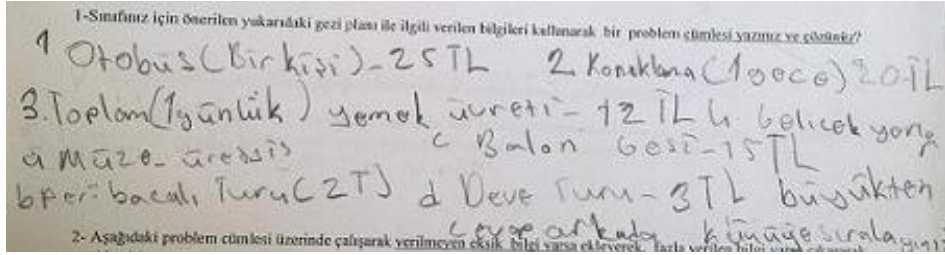 1-Sınıfınız için önerilen yukarıdaki gezi planı ile ilgili verilen bilgileri kullanarak bir problem cümlesi yazınız ve çözünüz?
1 Otobüs (Bir kişi) - 25 TL 2. Konaklama (1 gece) 20 TL
3. Toplam (1 günlük) yemek ücreti - 12 TL 4 Gelicek
a müze - c Balon Gesi - 15 TL
b peri bacalı Turu (2T) d Deve Turu - 3 TL büyükten
küçüğe sırala
2- Aşağıdaki problem cümlesi üzerinde çalışarak verilmeyen eksik bilgi varsa ekleyerek, fazla verilen bilgi varsa çıkararak